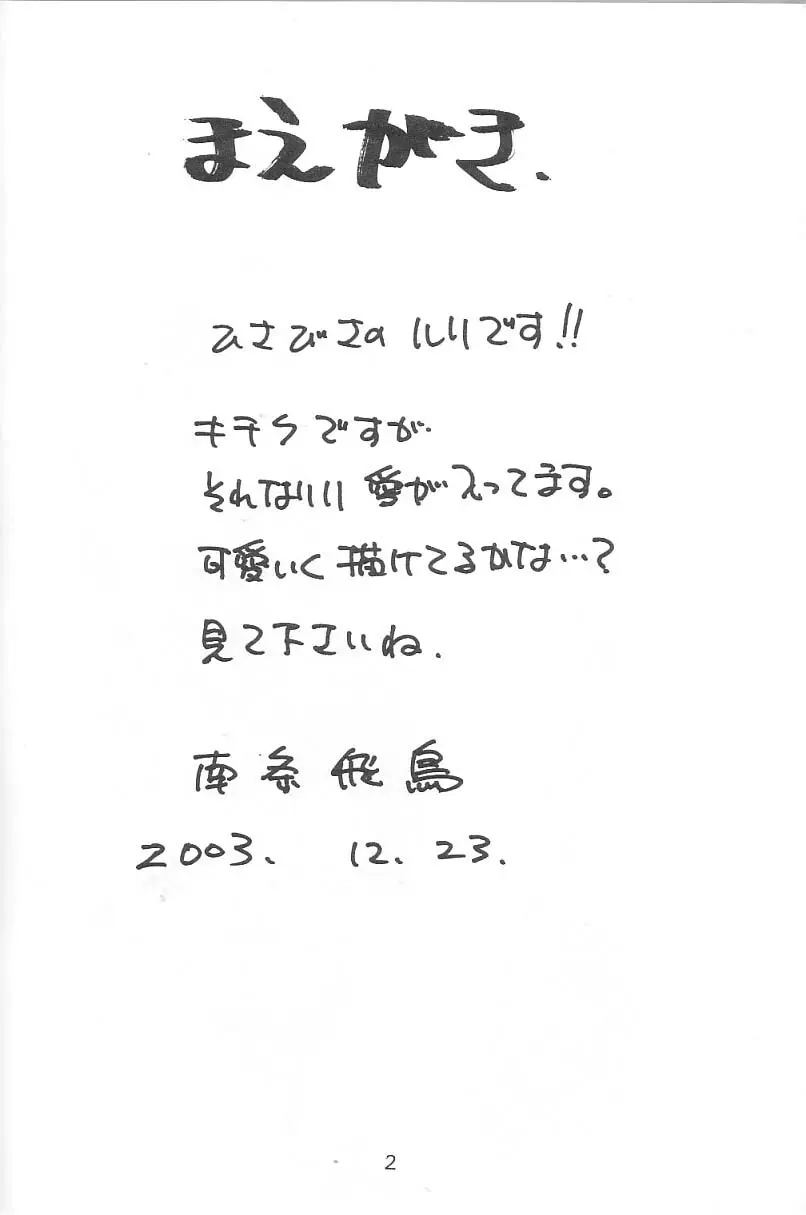 まえがき.
ひさびさの です!!
キチクですが.
それなりに 愛が入ってます。
可愛いく 描けてるかな…?
見て下さいね.
南条飛鳥
2003. 12. 23.
2